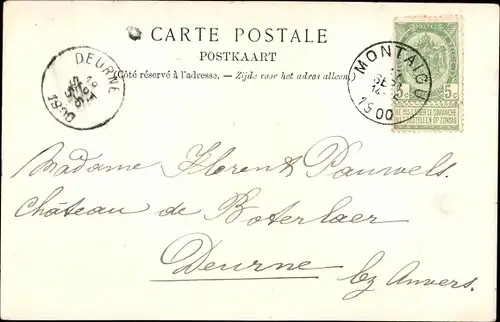 CARTE POSTALE
POSTKAART
(Côté réservé à l'adresse. — Zijde voor het adres alleen)
DEURNE
1900
MONTAIGU
1900
5c 5c
NE PAS LIVRER LE DIMANCHE
NIET BESTELLEN OP ZONDAG
Madame Florent Pauwels.
Château de Boterlaer
Deurne bij Anvers.